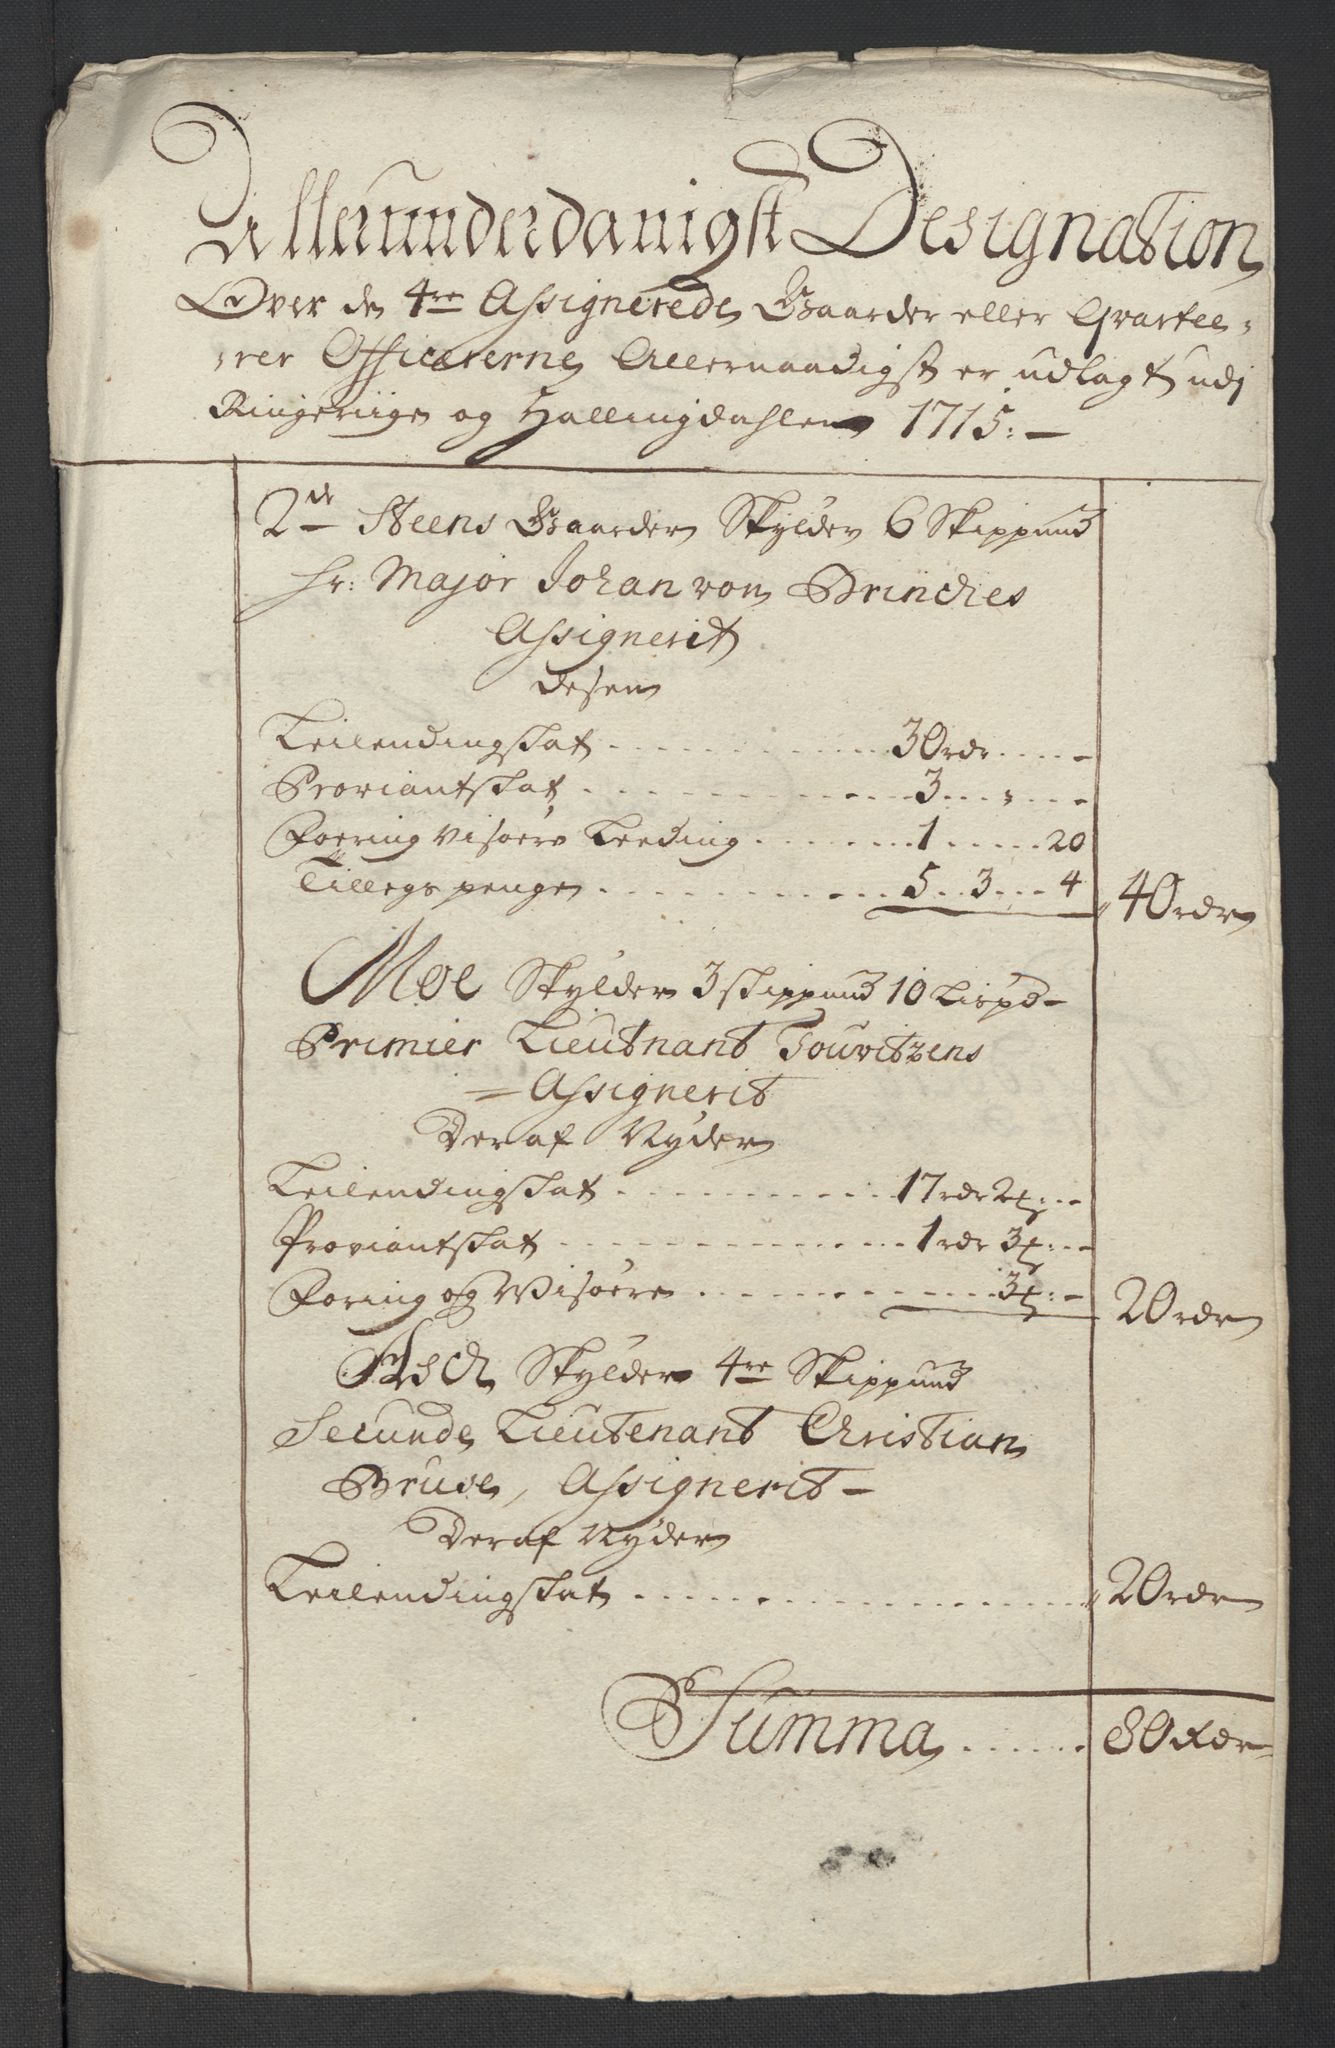 Allerunderdanigst Designation
Over de 4re Assignerede Gaarder eller Qvartee-
rer Officererne Allernaadigst er udlagt udj
Ringeriige og Hallingdahlen 1715:
2de Steens Gaarder Skylder 6 Skippund
Hr: Major Johan von Brinches
Assignerit
Leilendingskat 30 rdr
Proviantskat 3
Foering Visøere Leeding 1 20
Tillegs penge 5 3 4 40 rdr
Moe Skylder 3 skippund 10 Lispd
Premier Lieutnant Touvitzens
Assignerit
Deraf Nyder
Leilendingskat 17 rdr 2
Proviantskat 1 rdr 3
Foring og Visøere 3 20 rdr
Ask Skylder 4re Skippund
Secunde Lieutenant Christian
Bruse, Assignerit
Deraf Nyder
Leilendingskat 20 rdr
Summa 80 Rdr